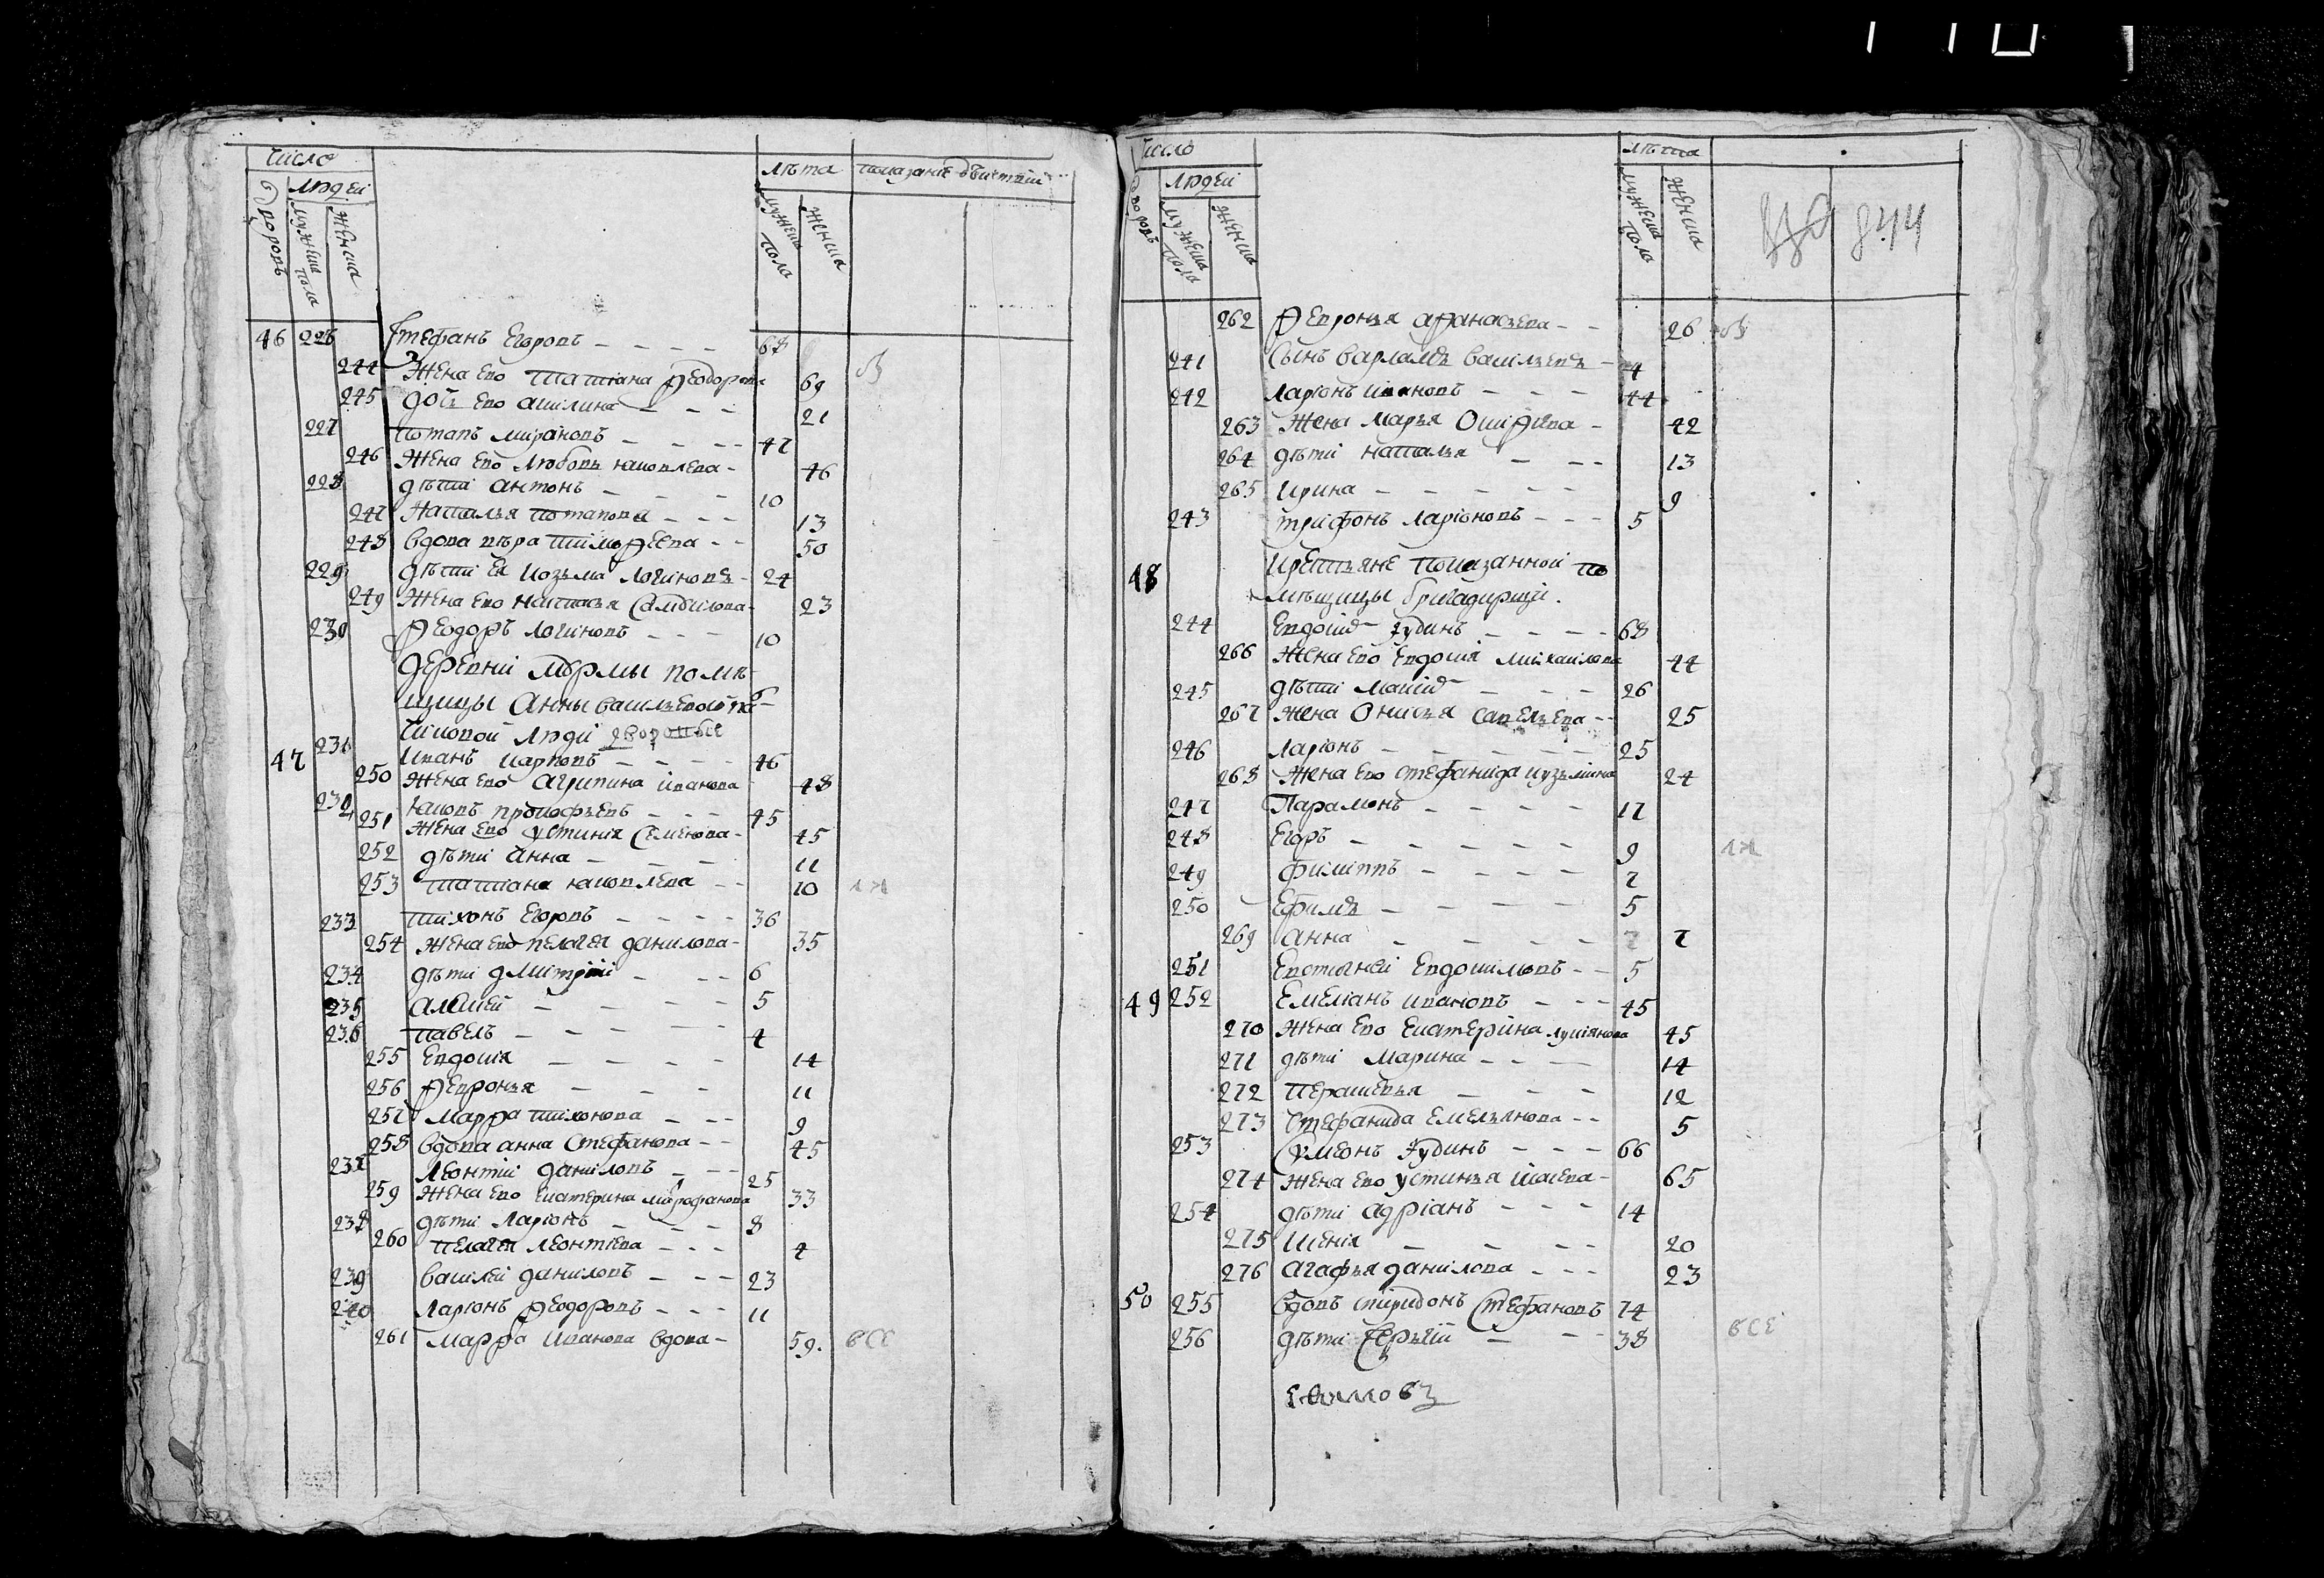 Число
Людей
лѣта
показание действий
Дворовъ
мужеска пола
женска
мужеска пола
женска
46 226 Стефанъ Егоровъ 68
244 Жена ево Татиана Феодорова 69
245 дочь ево Акилина 21
227 Потапъ Мироновъ 47
246 Жена ево Любовь Яковлева 46
228 дѣти Антонъ 10
247 Наталья Потапова 13
248 вдова Вѣра Тимофеева 50
229 дѣти ея Козьма Логиновъ 24
249 Жена ево Настасья Самойлова 23
230 Феодоръ Логиновъ 10
деревни помѣ-
щицы Анны Васильевой
люди дворовые
47 231 Иванъ Карповъ 46
250 Жена ево Агрипина Иванова 48
232 Яковъ Прокофьевъ 45
251 Жена ево Устинья Семенова 45
252 дѣти Анна 11
253 Татиана Яковлева 10
233 Тихонъ Егоровъ 36
254 Жена ево Пелагея Данилова 35
234 дѣти Дмитрий 6
235 Алексей 5
236 Павелъ 4
255 Евдокия 14
256 Февронья 11
257 Марфа Тихонова 9
258 вдова Анна Стефанова 45
237 Леонтий Даниловъ 25
259 Жена ево Екатерина Мафанова 33
238 дѣти Ларіонъ 8
260 Пелагея Леонтиева 4
239 Василей Даниловъ 23
240 Ларіонъ Феодоровъ 11
261 Марфа Иванова вдова 59. все
Число
Людей
лѣта
Дворовъ
мужеска пола
женска
мужеска пола
женска
844
262 Февронья Афанасьева 26
241 Сынъ Варламъ Васильевъ 4
242 Ларіонъ Ивановъ 44
263 Жена Марья Осифова 42
264 дѣти Наталья 13
265 Ирина 9
243 Трифонъ Ларіоновъ 5
48 Крестьяне показанной по
мѣщицы бригадирши.
244 Евдокимъ Зудинъ 68
266 Жена ево Евдокия Михаилова 44
245 дѣти Максимъ 26
267 Жена Онисья Савельева 25
246 Ларіонъ 25
268 Жена ево Стефанида Кузьмина 24
247 Парамонъ 17
248 Егоръ 9
249 Филиппъ 7
250 Ефимъ 5
269 Анна 7 7
251 Евстигней Евдокимовъ 5
49 252 Емеліанъ Ивановъ 45
270 Жена ево Екатерина Лукиянова 45
271 дѣти Марина 14
272 Перасковья 12
273 Стефанида Емельянова 5
253 Сумеонъ Зудинъ 66
274 Жена ево Устинья Исаева 65
254 дѣти Адріанъ 14
275 Ксения 20
276 Агафья Данилова 23
50 255 вдовъ Спиридонъ Стефановъ 74
256 дѣти Сергий 38 все